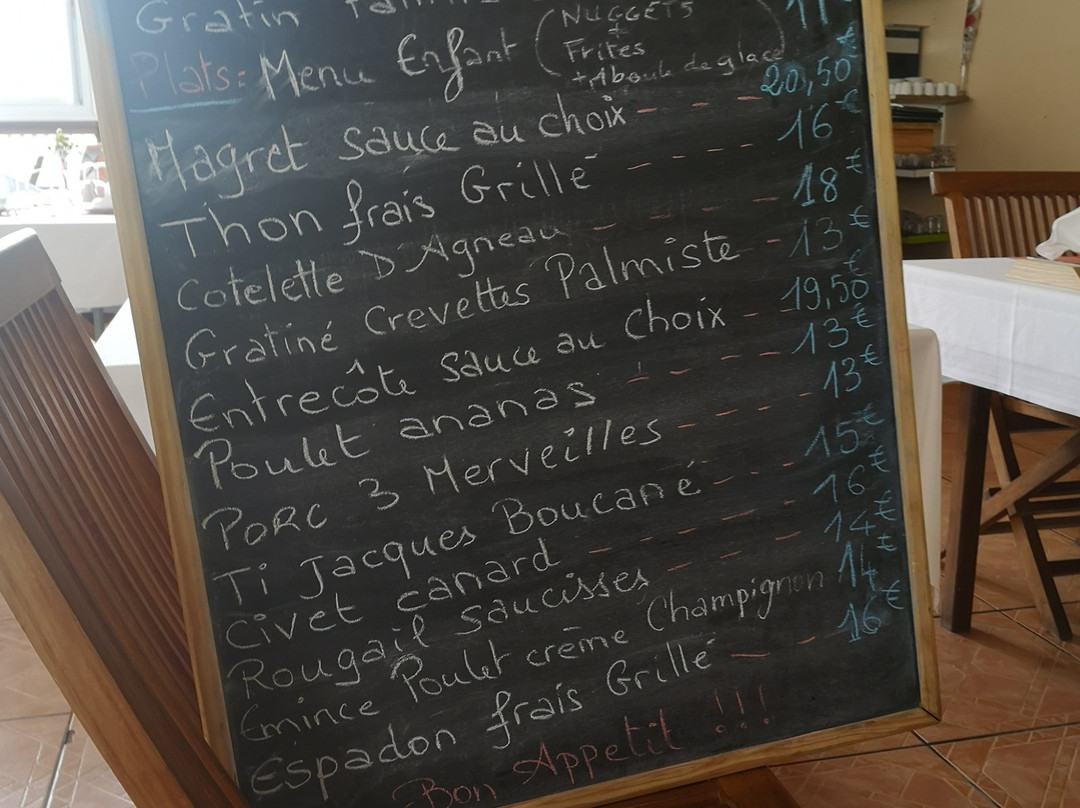 Gratin
Plats: Menu Enfant (NUGGETS + Frites +1 boule de glace) 11 €
Magret sauce au choix - - - - 20,50 €
Thon frais Grillé - - - - 16 €
Cotelette D'Agneau - - - - 18 €
Gratiné Crevettes Palmiste - 13 €
Entrecôte sauce au choix - - 19,50 €
Poulet ananas - - - - - 13 €
PORC 3 Merveilles - - - - - 13 €
Ti Jacques Boucané - - - 15 €
Civet canard - - - - - - 16 €
Rougail saucisses - - - - 14 €
Emince Poulet crème Champignon 14 €
Espadon frais Grillé - - 16 €
Bon Appetit !!!